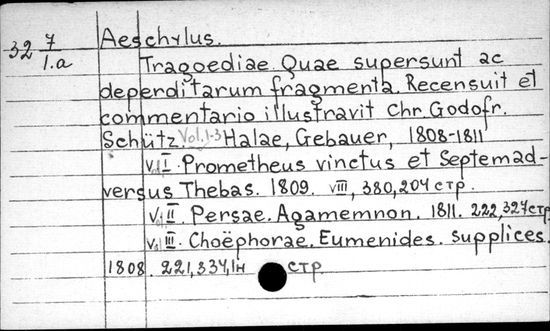 32 7/1.a Aeschylus.
Tragoediae. Quae supersunt ac
deperditarum fragmenta. Recensuit et
commentario illustravit Chr. Godofr.
Schütz. Vol. 1-3 Halae, Gebauer, 1808-1811
V. I. Prometheus vinctus et Septemad-
versus Thebas. 1809. VIII, 380, 204 стр.
V. II. Persae. Agamemnon. 1811. 222, 327 стр
V. III. Choëphorae. Eumenides. Supplices.
1808. 221, 334, 1н стр.